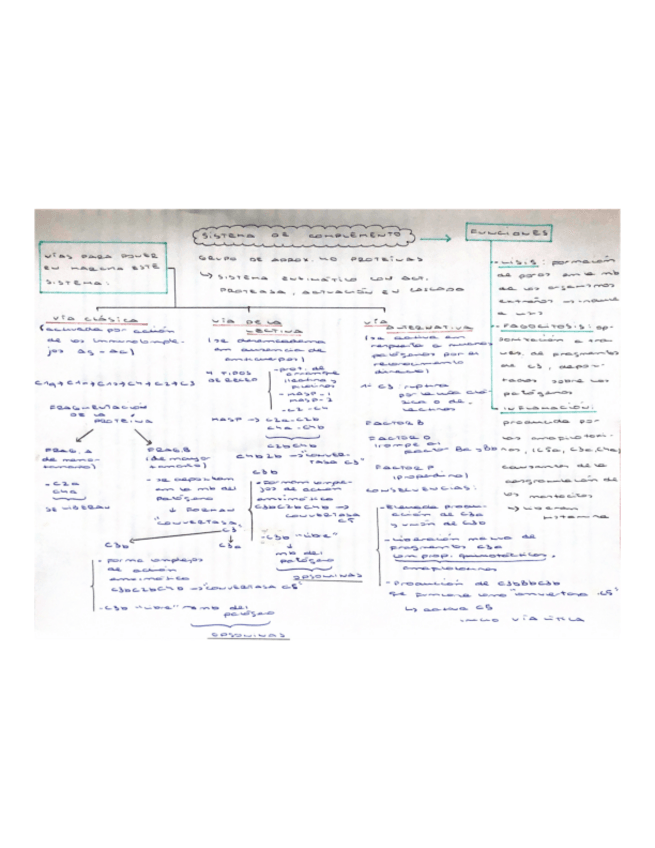 SISTEMA DE COMPLEMENTO
FUNCIONES
VÍAS PARA PONER
EN MARCHA ESTE
SISTEMA:
GRUPO DE APROX. 40 PROTEÍNAS
↳ SISTEMA ENZIMÁTICO CON ACT.
PROTEASA, ACTUACIÓN EN CASCADA
VÍA CLÁSICA
(activada por acción
de los inmunocomple-
jos Ag - Ac)
FRAGMENTACIÓN
DE LA
PROTEÍNA
FRAG. A
(de menor
tamaño)
- C2a
C4a
SE LIBERAN
FRAG. B
(de mayor
tamaño)
- se depositan
en la mb del
patógeno
↓ FORMAN
"CONVERTASA
C3"
C3b
C3a
- forma complejos
de acción
enzimática
C3bC2bC4b → "CONVERTASA C5"
- C3b "libre" → mb del
patógeno
OPSONINAS
VÍA DE LA
LECTINA
(se desencadena
en ausencia de
anticuerpos)
4 TIPOS
DE RECEP
- prot. de
- MASP-1
MASP-2
- C2 - C4
MASP → C2a - C2b
C4a - C4b
C2bC4b
C4b2b → "CONVER-
TASA C3"
C3b
- Forman comple-
jos de acción
enzimática
C3bC2bC4b →
CONVERTASA
C5
- C3b "libre"
↓
mb del
patógeno
OPSONINAS
VÍA
ALTERNATIVA
(se activa en
respuesta a muchos
patógenos por el
reconocimiento
directo)
C3: ruptura
por la vía clá-
sica o de
lectinas
FACTOR B
FACTOR D
(rompe al
factor Ba y Bb
FACTOR P
(properdina)
CONSECUENCIAS:
- Elevada produc-
ción de C3b
y unión de C3b
- Liberación masiva de
fragmentos C3a
con prop. quimiotácticas,
anafilotoxinas
- Producción de C3bBbC3b
que funciona como "convertasa C5"
↳ activa C5
INICIO VÍA LÍTICA
- LISIS: formación
de poros en la mb
de los organismos
extraños
- FAGOCITOSIS: op-
sonización a tra-
vés de fragmentos
de C3, deposi-
tados sobre los
patógenos
- INFLAMACIÓN:
producida por
las anafilotoxi-
nas, (C5a, C3a, C4a)
causantes de la
desgranulación de
los mastocitos
↳ liberan
histamina